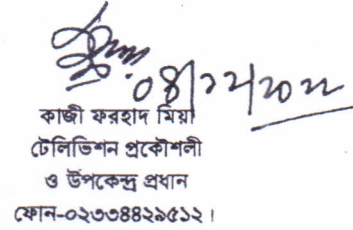 ০৪/১২/২০২২
কাজী ফরহাদ মিয়া
টেলিভিশন প্রকৌশলী
ও উপকেন্দ্র প্রধান
ফোন-০২৩৩৪৪২৯৫১২।